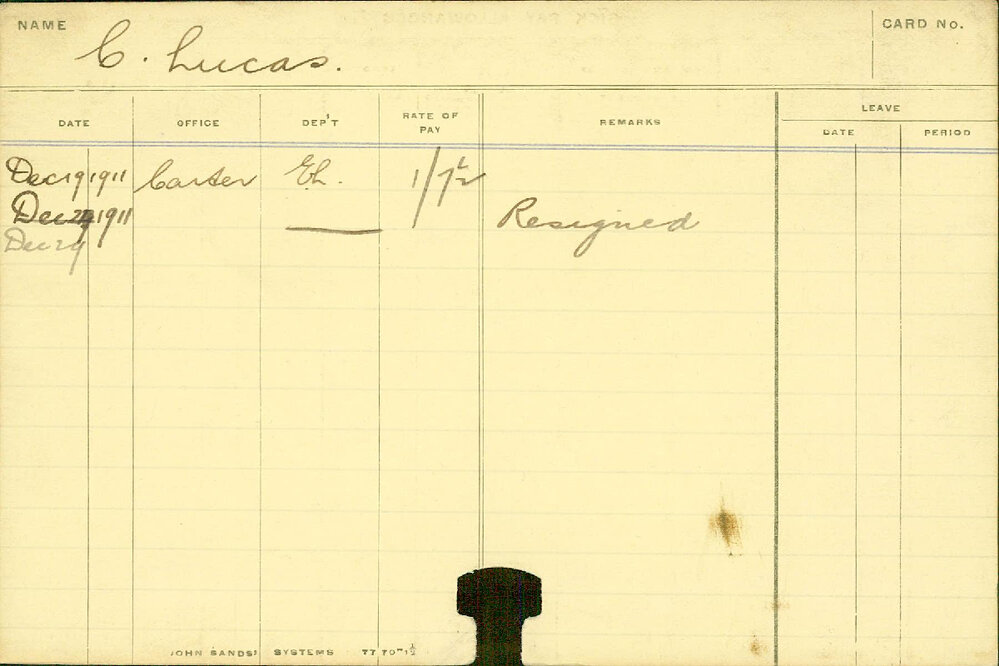 NAME
C. Lucas.
CARD No.
DATE OFFICE DEP'T RATE OF PAY REMARKS LEAVE
DATE PERIOD
Dec 19 1911 Carter Eh. 1/7½
Dec 29 1911 Resigned
Dec 29
JOHN SANDS' SYSTEMS